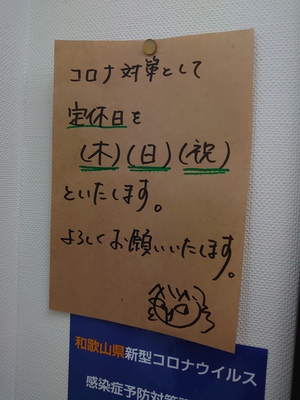 コロナ対策として
定休日を
(木)(日)(祝)
といたします。
よろしくお願いいたします。
和歌山県新型コロナウイルス
感染症予防対策